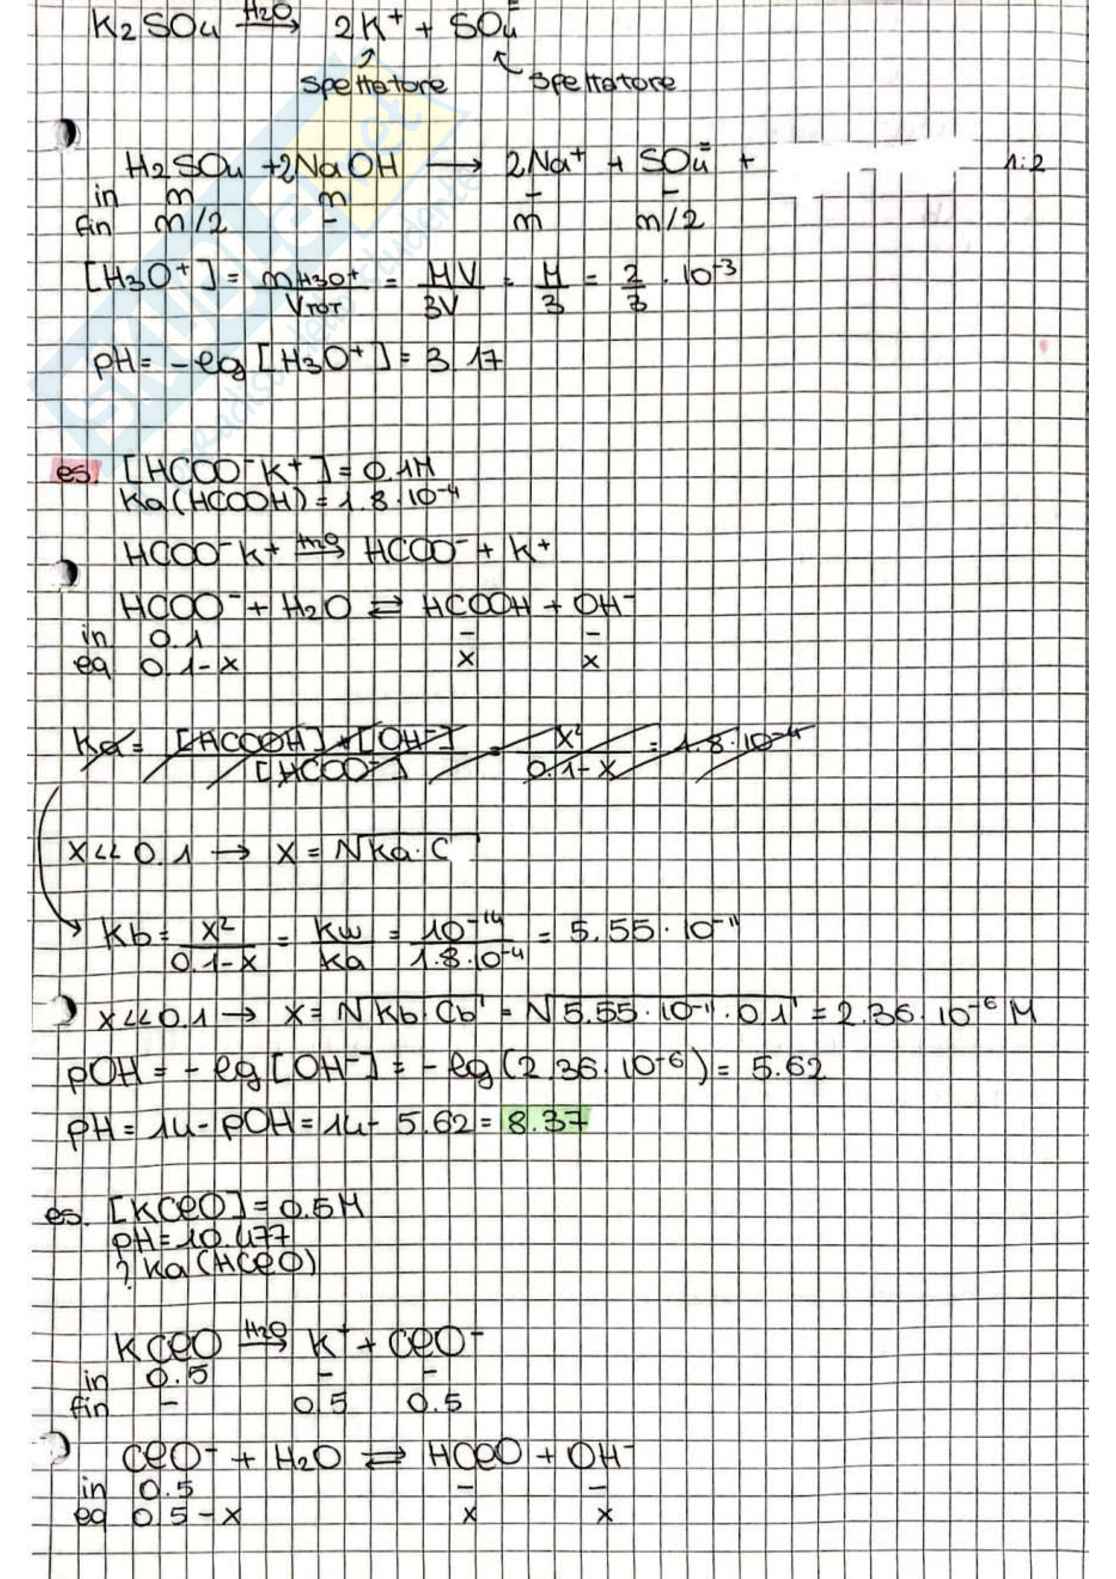 K2SO4 —H2O→ 2K+ + SO4=
Spettatore Spettatore
H2SO4 + 2NaOH → 2Na+ + SO4= + 1:2
in m m - -
fin m/2 - m m/2
[H3O+] = mH3O+/VTOT = MV/3V = M/3 = 2/3 · 10-3
pH = -lg [H3O+] = 3.17
es. [HCOO-K+] = 0.1M
Ka(HCOOH) = 1.8·10-4
HCOO-K+ —H2O→ HCOO- + K+
HCOO- + H2O ⇄ HCOOH + OH-
in 0.1 - -
eq 0.1-x x x
Ka = [HCOOH]·[OH-]/[HCOO-] = x²/0.1-x = 1.8·10-4
x<<0.1 → x = √Ka·C
Kb = x²/0.1-x = Kw/Ka = 10-14/1.8·10-4 = 5.55·10-11
x<<0.1 → x = √Kb·Cb = √5.55·10-11·0.1 = 2.36·10-6 M
pOH = -lg[OH-] = -lg(2.36·10-6) = 5.62
pH = 14 - pOH = 14 - 5.62 = 8.37
es. [KClO] = 0.5M
pH = 10.477
? Ka(HClO)
KClO —H2O→ K+ + ClO-
in 0.5 - -
fin - 0.5 0.5
ClO- + H2O ⇄ HClO + OH-
in 0.5 - -
eq 0.5-x x x